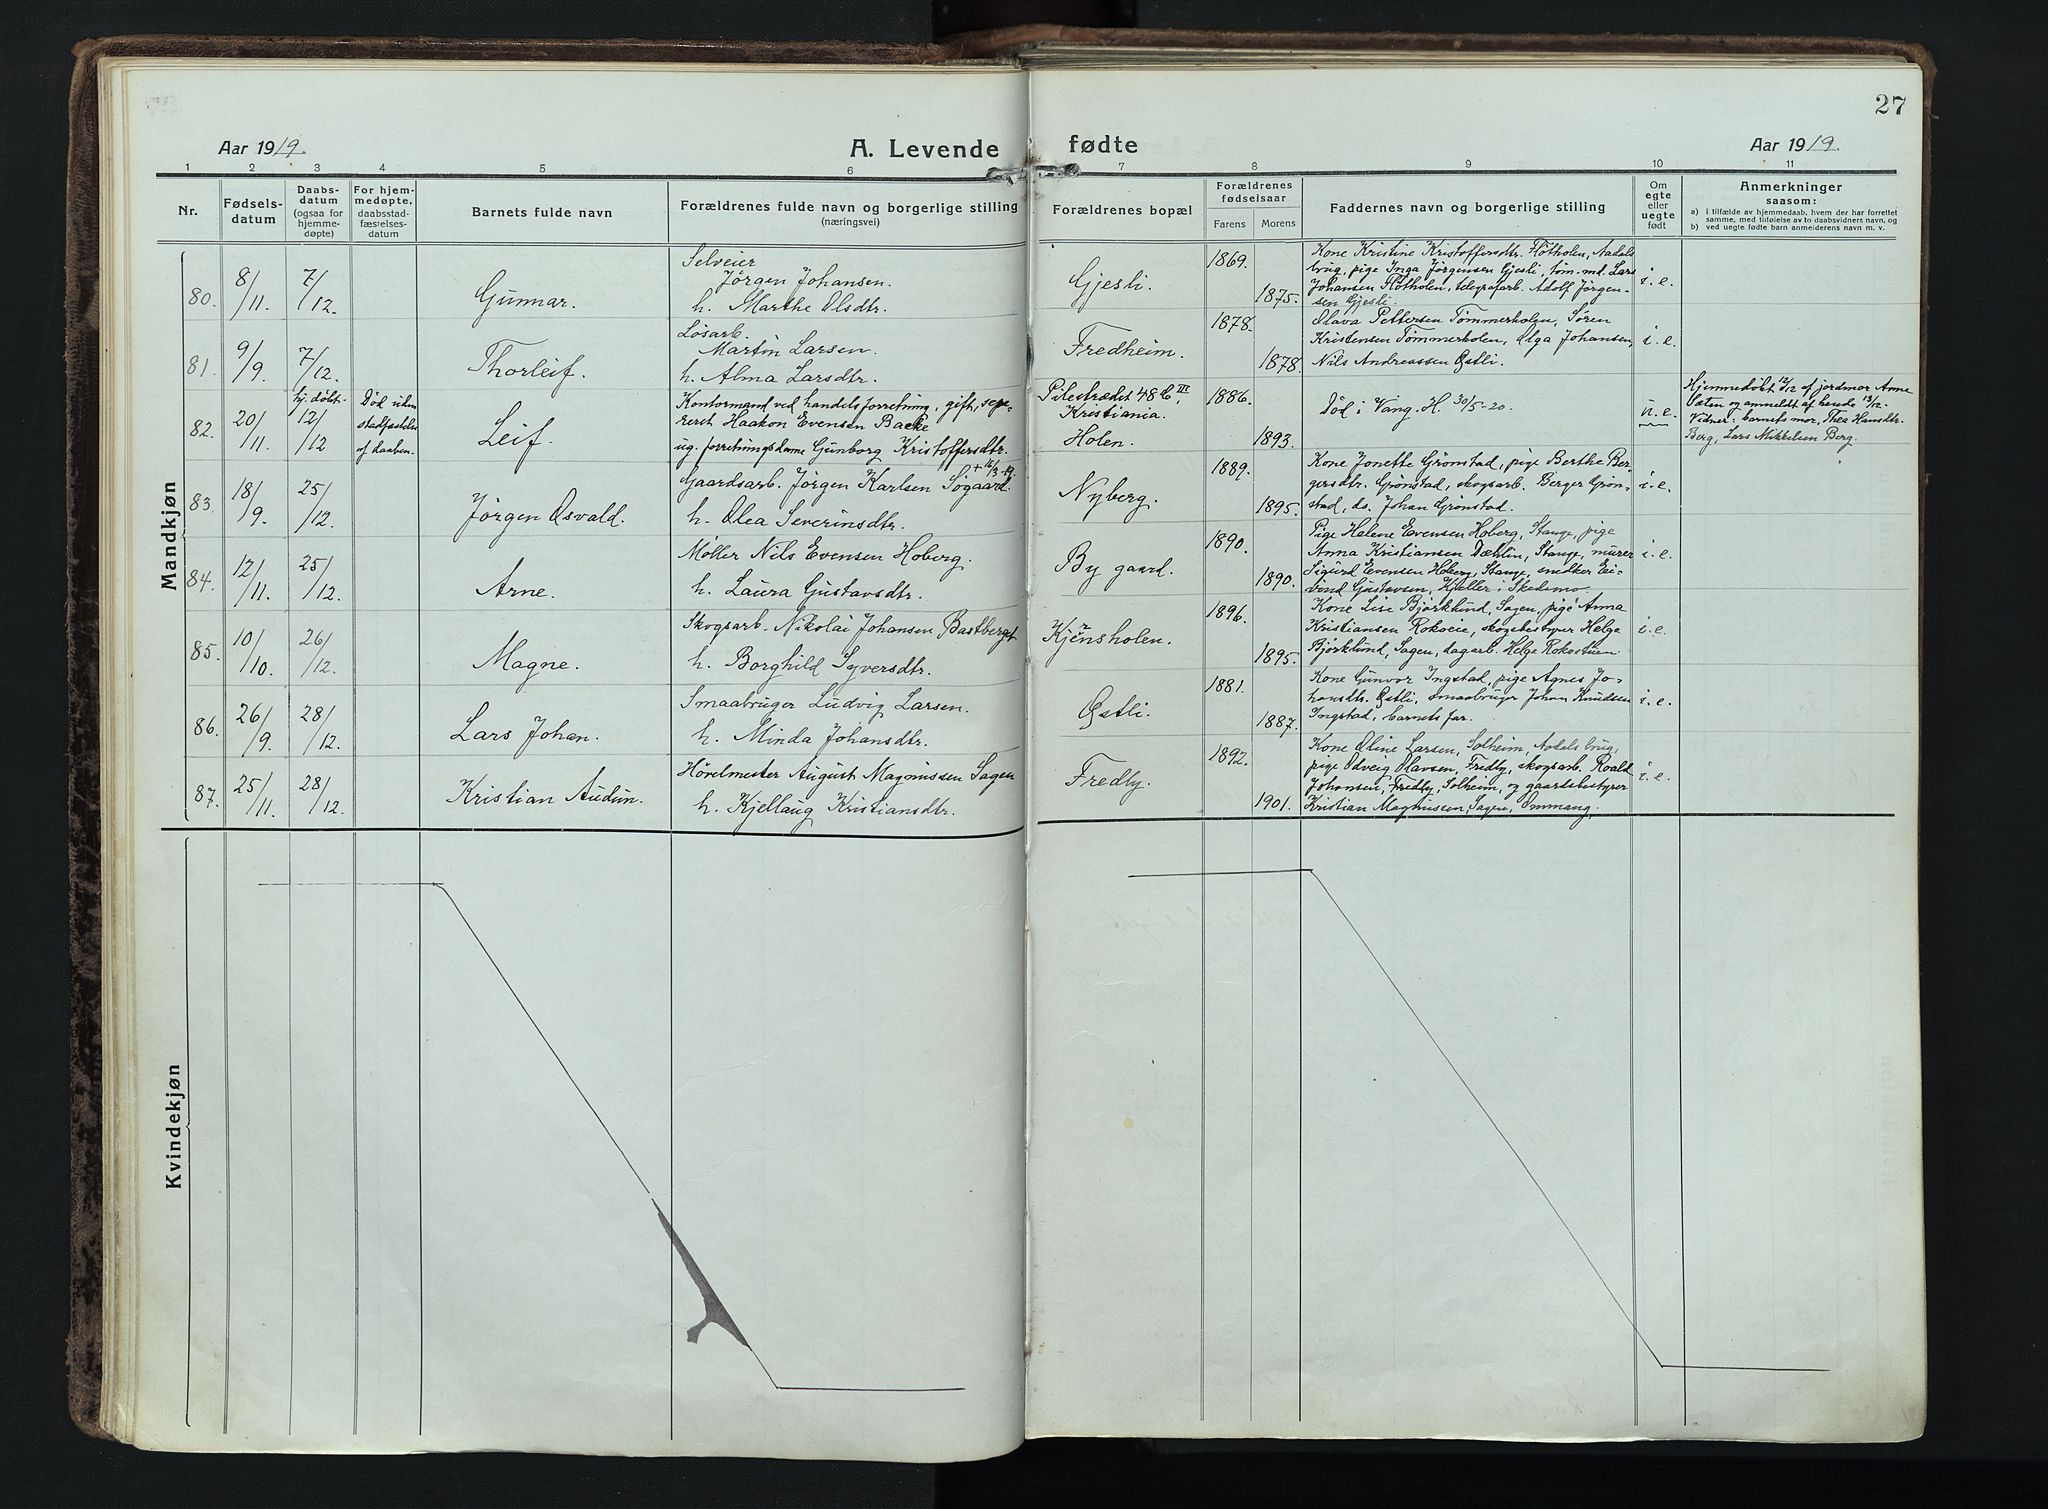 27
Aar 1919.
A. Levende fødte
Aar 1919.
1 2 3 4 5 6 7 8 9 10 11
Nr.
Fødsels-
datum
Daabs-
datum
(ogsaa for
hjemme-
døpte)
For hjem-
medøpte,
daabsstad-
fæstelses-
datum
Barnets fulde navn
Forældrenes fulde navn og borgerlige stilling
(næringsvei)
Forældrenes bopæl
Forældrenes
fødselsaar
Farens Morens
Faddernes navn og borgerlige stilling
Om
egte
eller
uegte
født
Anmerkninger
saasom:
a) i tilfælde av hjemmedaab, hvem der har forrettet
samme, med tilføielse av to daabsvidners navn, og
b) ved uegte fødte barn anmelderens navn m. v.
Mandkjøn
80. 8/11. 7/12. Gunnar.
Selveier
Jørgen Johansen.
h. Marthe Olsdtr.
Gjesli.
1869.
1875.
Kone Kristine Kristoffersdtr. Flötholen, Aadals
brug, pige Inga Jørgensen Gjesli, töm.md. Lars
Johansen Flötholen, telegrafarb. Adolf Jørgen-
sen Gjesli.
i. e.
81. 9/9. 7/12. Thorleif.
Løsarb.
Martin Larsen.
h. Alma Larsdtr.
Fredheim.
1878.
1878.
Olava Pettersen Tömmerholen, Sören
Kristensen Tömmerholen, Olga Johansen,
Nils Andreassen Østli.
i. e.
82. 20/11. hj. døbt 12/12
Død uden
stadfæstelse
af daaben.
Leif.
Kontormand ved handelsforretning, gift, sepe-
rert Haakon Evensen Bakke
ug. forretningsdame Gunborg Kristoffersdtr.
Pilestrædet 48 b III,
Kristiania.
Holen.
1886.
1893.
Død i Vang. H. 30/5-20.
u. e.
Hjemmedøbt 12/12 af jordmor Anne
Sæten og anmeldt af hende 13/12.
Vidner: barnets mor, Thea Hansdtr.
Berg, Lars Mikkelsen Berg.
83. 18/9. 25/12. Jørgen Osvald.
+ 16/3-19.
Gaardsarb. Jørgen Karlsen Søgaard.
h. Olea Severinsdtr.
Nyberg.
1889.
1895.
Kone Jonette Grönstad, pige Berthe Ber-
gersdtr. Grönstad, skogsarb. Berger Grön-
stad, do. Johan Grönstad.
i. e.
84. 12/11. 25/12. Arne.
Møller Nils Evensen Hoberg.
h. Laura Gustavsdtr.
By gaard.
1890.
1890.
Pige Helene Evensen Hoberg, Stange, pige
Anna Kristiansen Dæhlin, Stange, murer
Sigurd Evensen Hoberg, Stange, smedker Ei-
vind Gustavsen, Kjeller i Skedsmo.
i. e.
85. 10/10. 26/12. Magne.
Skogsarb. Nikolai Johansen Bastberget
h. Borghild Syversdtr.
Kjernsholen.
1896.
1895.
Kone Lise Björklund, Sagen, pige Anna
Kristiansen Rokoeie, skogsbestyrer Helge
Björklund, Sagen, dagarb. Helge Rokostuen
i. e.
86. 26/9. 28/12. Lars Johan.
Smaabruger Ludvig Larsen.
h. Minda Johansdtr.
Østli.
1881.
1887.
Kone Gunvor Ingstad, pige Agnes Jo-
hansdtr. Østli, smaabruger Johan Knudsen
Ingstad, barnets far.
i. e.
87. 25/11. 28/12. Kristian Audun.
Høvelmester August Magnussen Sagen
h. Kjellaug Kristiansdtr.
Fredly.
1892.
1901.
Kone Oline Larsen, Solheim, Aadals brug,
pige Odveig Olavsen, Fredly, skogsarb. Roald
Johansen, Fredly, Solheim, og gaardsbestyrer
Kristian Magnussen, Sagen, Ommang.
i. e.
Kvindekjøn